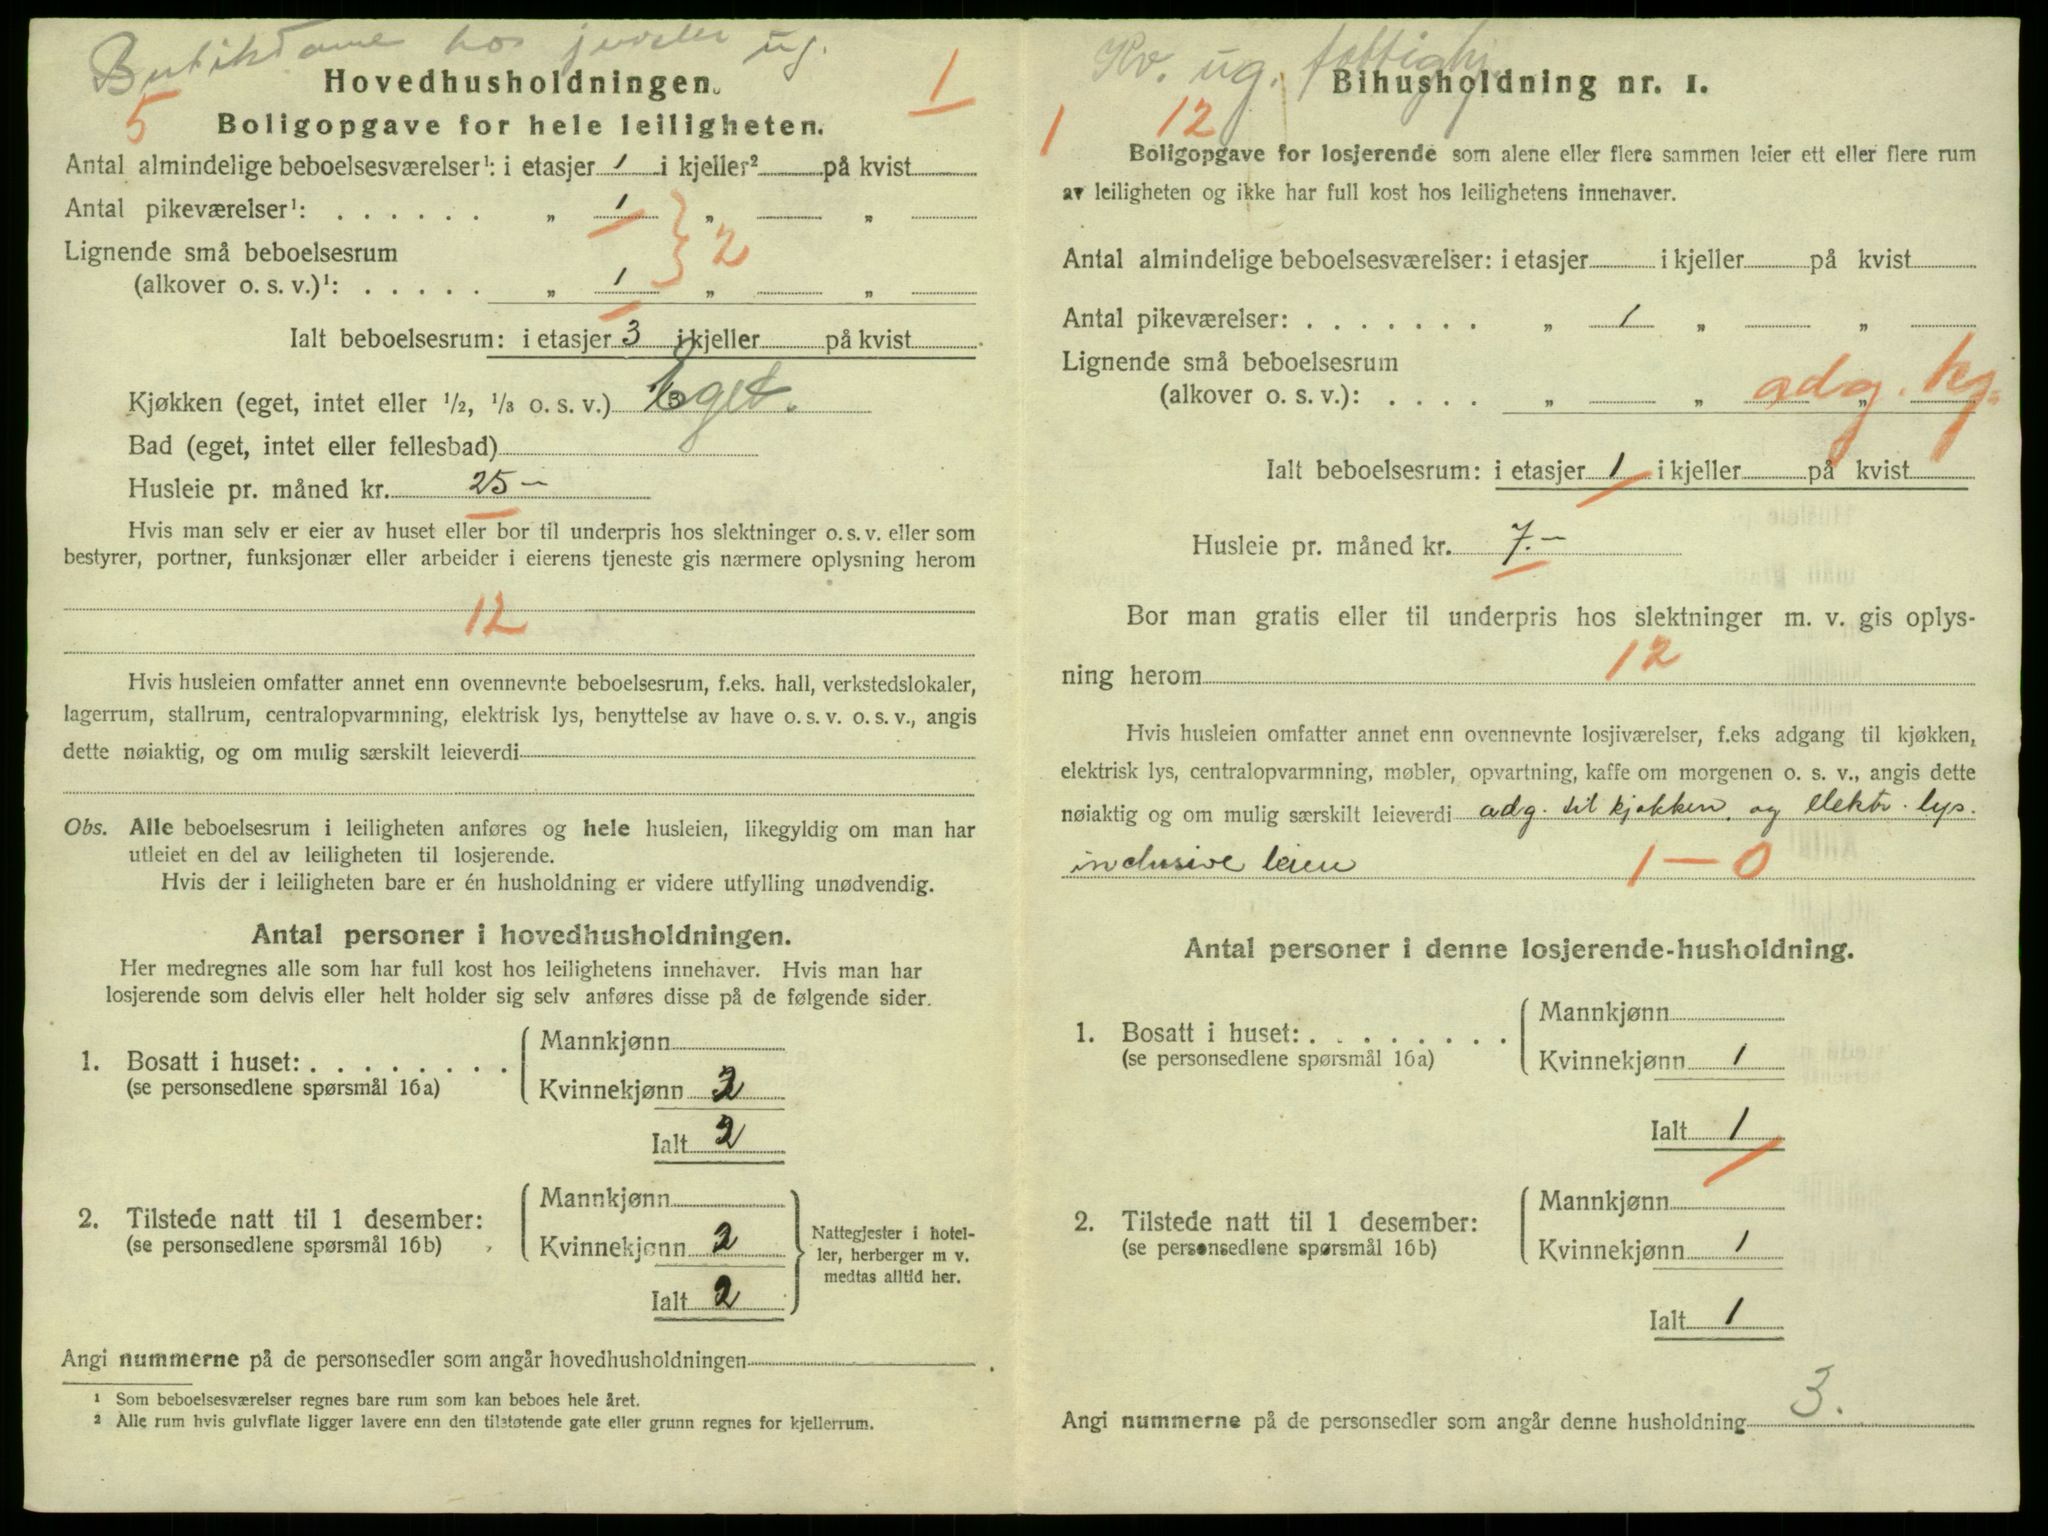 Butikdame hos juveler ug.
Hovedhusholdningen.
5
1
Boligopgave for hele leiligheten.
Antal almindelige beboelsesværelser¹: i etasjer 1 i kjeller² på kvist
Antal pikeværelser¹: . . . . . . „ 1 „ „
2
Lignende små beboelsesrum
(alkover o. s. v.)¹: . . . . . „ 1 „ „
Ialt beboelsesrum: i etasjer 3 i kjeller på kvist
Kjøkken (eget, intet eller ½, ⅓ o. s. v.) Eget.
Bad (eget, intet eller fellesbad)
Husleie pr. måned kr. 25 —
Hvis man selv er eier av huset eller bor til underpris hos slektninger o. s. v. eller som
bestyrer, portner, funksjonær eller arbeider i eierens tjeneste gis nærmere oplysning herom
12
Hvis husleien omfatter annet enn ovennevnte beboelsesrum, f.eks. hall, verkstedslokaler,
lagerrum, stallrum, centralopvarmning, elektrisk lys, benyttelse av have o. s. v. o. s. v., angis
dette nøiaktig, og om mulig særskilt leieverdi
Obs. Alle beboelsesrum i leiligheten anføres og hele husleien, likegyldig om man har
utleiet en del av leiligheten til losjerende.
Hvis der i leiligheten bare er én husholdning er videre utfylling unødvendig.
Antal personer i hovedhusholdningen.
Her medregnes alle som har full kost hos leilighetens innehaver. Hvis man har
losjerende som delvis eller helt holder sig selv anføres disse på de følgende sider.
1. Bosatt i huset: . . . . . . . .
(se personsedlene spørsmål 16a)
Mannkjønn
Kvinnekjønn 2
Ialt 2
2. Tilstede natt til 1 desember:
(se personsedlene spørsmål 16b)
Mannkjønn
Kvinnekjønn 2
Ialt 2
Nattegjester i hotel-
ler, herberger m v.
medtas alltid her.
Angi nummerne på de personsedler som angår hovedhusholdningen
¹ Som beboelsesværelser regnes bare rum som kan beboes hele året.
² Alle rum hvis gulvflate ligger lavere enn den tilstøtende gate eller grunn regnes for kjellerrum.
Kv. ug. fattighj.
Bihusholdning nr. 1.
1 12
Boligopgave for losjerende som alene eller flere sammen leier ett eller flere rum
av leiligheten og ikke har full kost hos leilighetens innehaver.
Antal almindelige beboelsesværelser: i etasjer i kjeller på kvist
Antal pikeværelser: . . . . . . . „ 1 „ „
Lignende små beboelsesrum
(alkover o. s. v.): . . . . „ „ „
adg. kj.
Ialt beboelsesrum: i etasjer 1 i kjeller på kvist
Husleie pr. måned kr. 7. —
Bor man gratis eller til underpris hos slektninger m. v. gis oplys-
ning herom 12
Hvis husleien omfatter annet enn ovennevnte losjiværelser, f.eks adgang til kjøkken,
elektrisk lys, centralopvarmning, møbler, opvartning, kaffe om morgenen o. s. v., angis dette
nøiaktig og om mulig særskilt leieverdi adg. til kjøkken. og elektr. lys.
inclusive leien 1 — 0
Antal personer i denne losjerende-husholdning.
1. Bosatt i huset: . . . . . . . .
(se personsedlene spørsmål 16a)
Mannkjønn
Kvinnekjønn 1
Ialt 1
2. Tilstede natt til 1 desember:
(se personsedlene spørsmål 16b)
Mannkjønn
Kvinnekjønn 1
Ialt 1
Angi nummerne på de personsedler som angår denne husholdning 3.